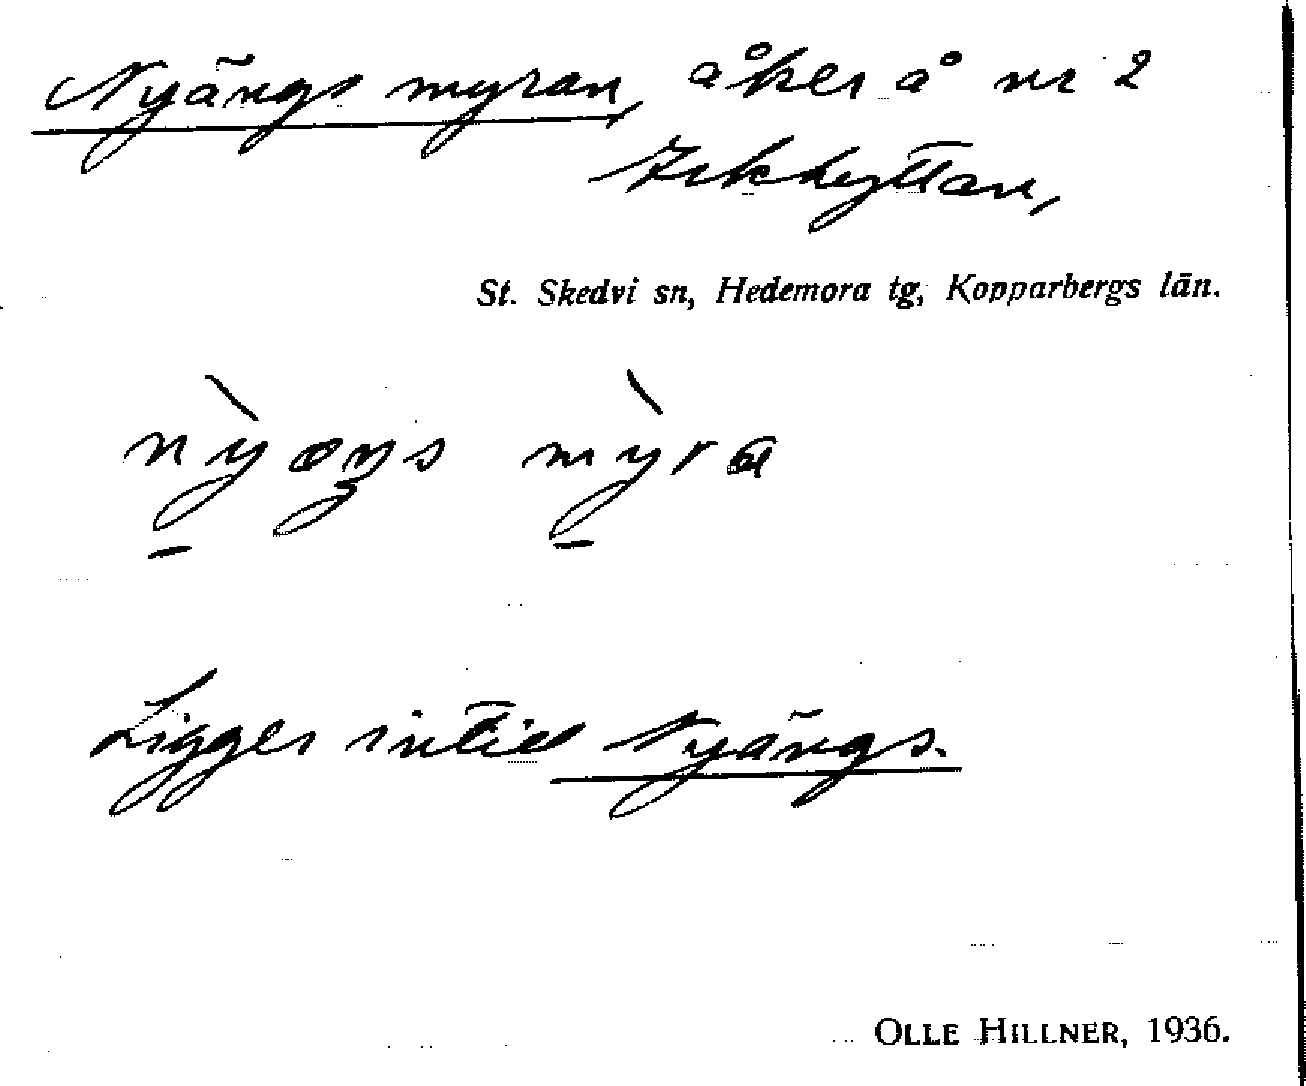 Nyängs myran, åker å nr 2
St. Skedvi sn, Hedemora tg, Kopparbergs län.
Ligger intill Nyängs.
OLLE HILLNER, 1936.